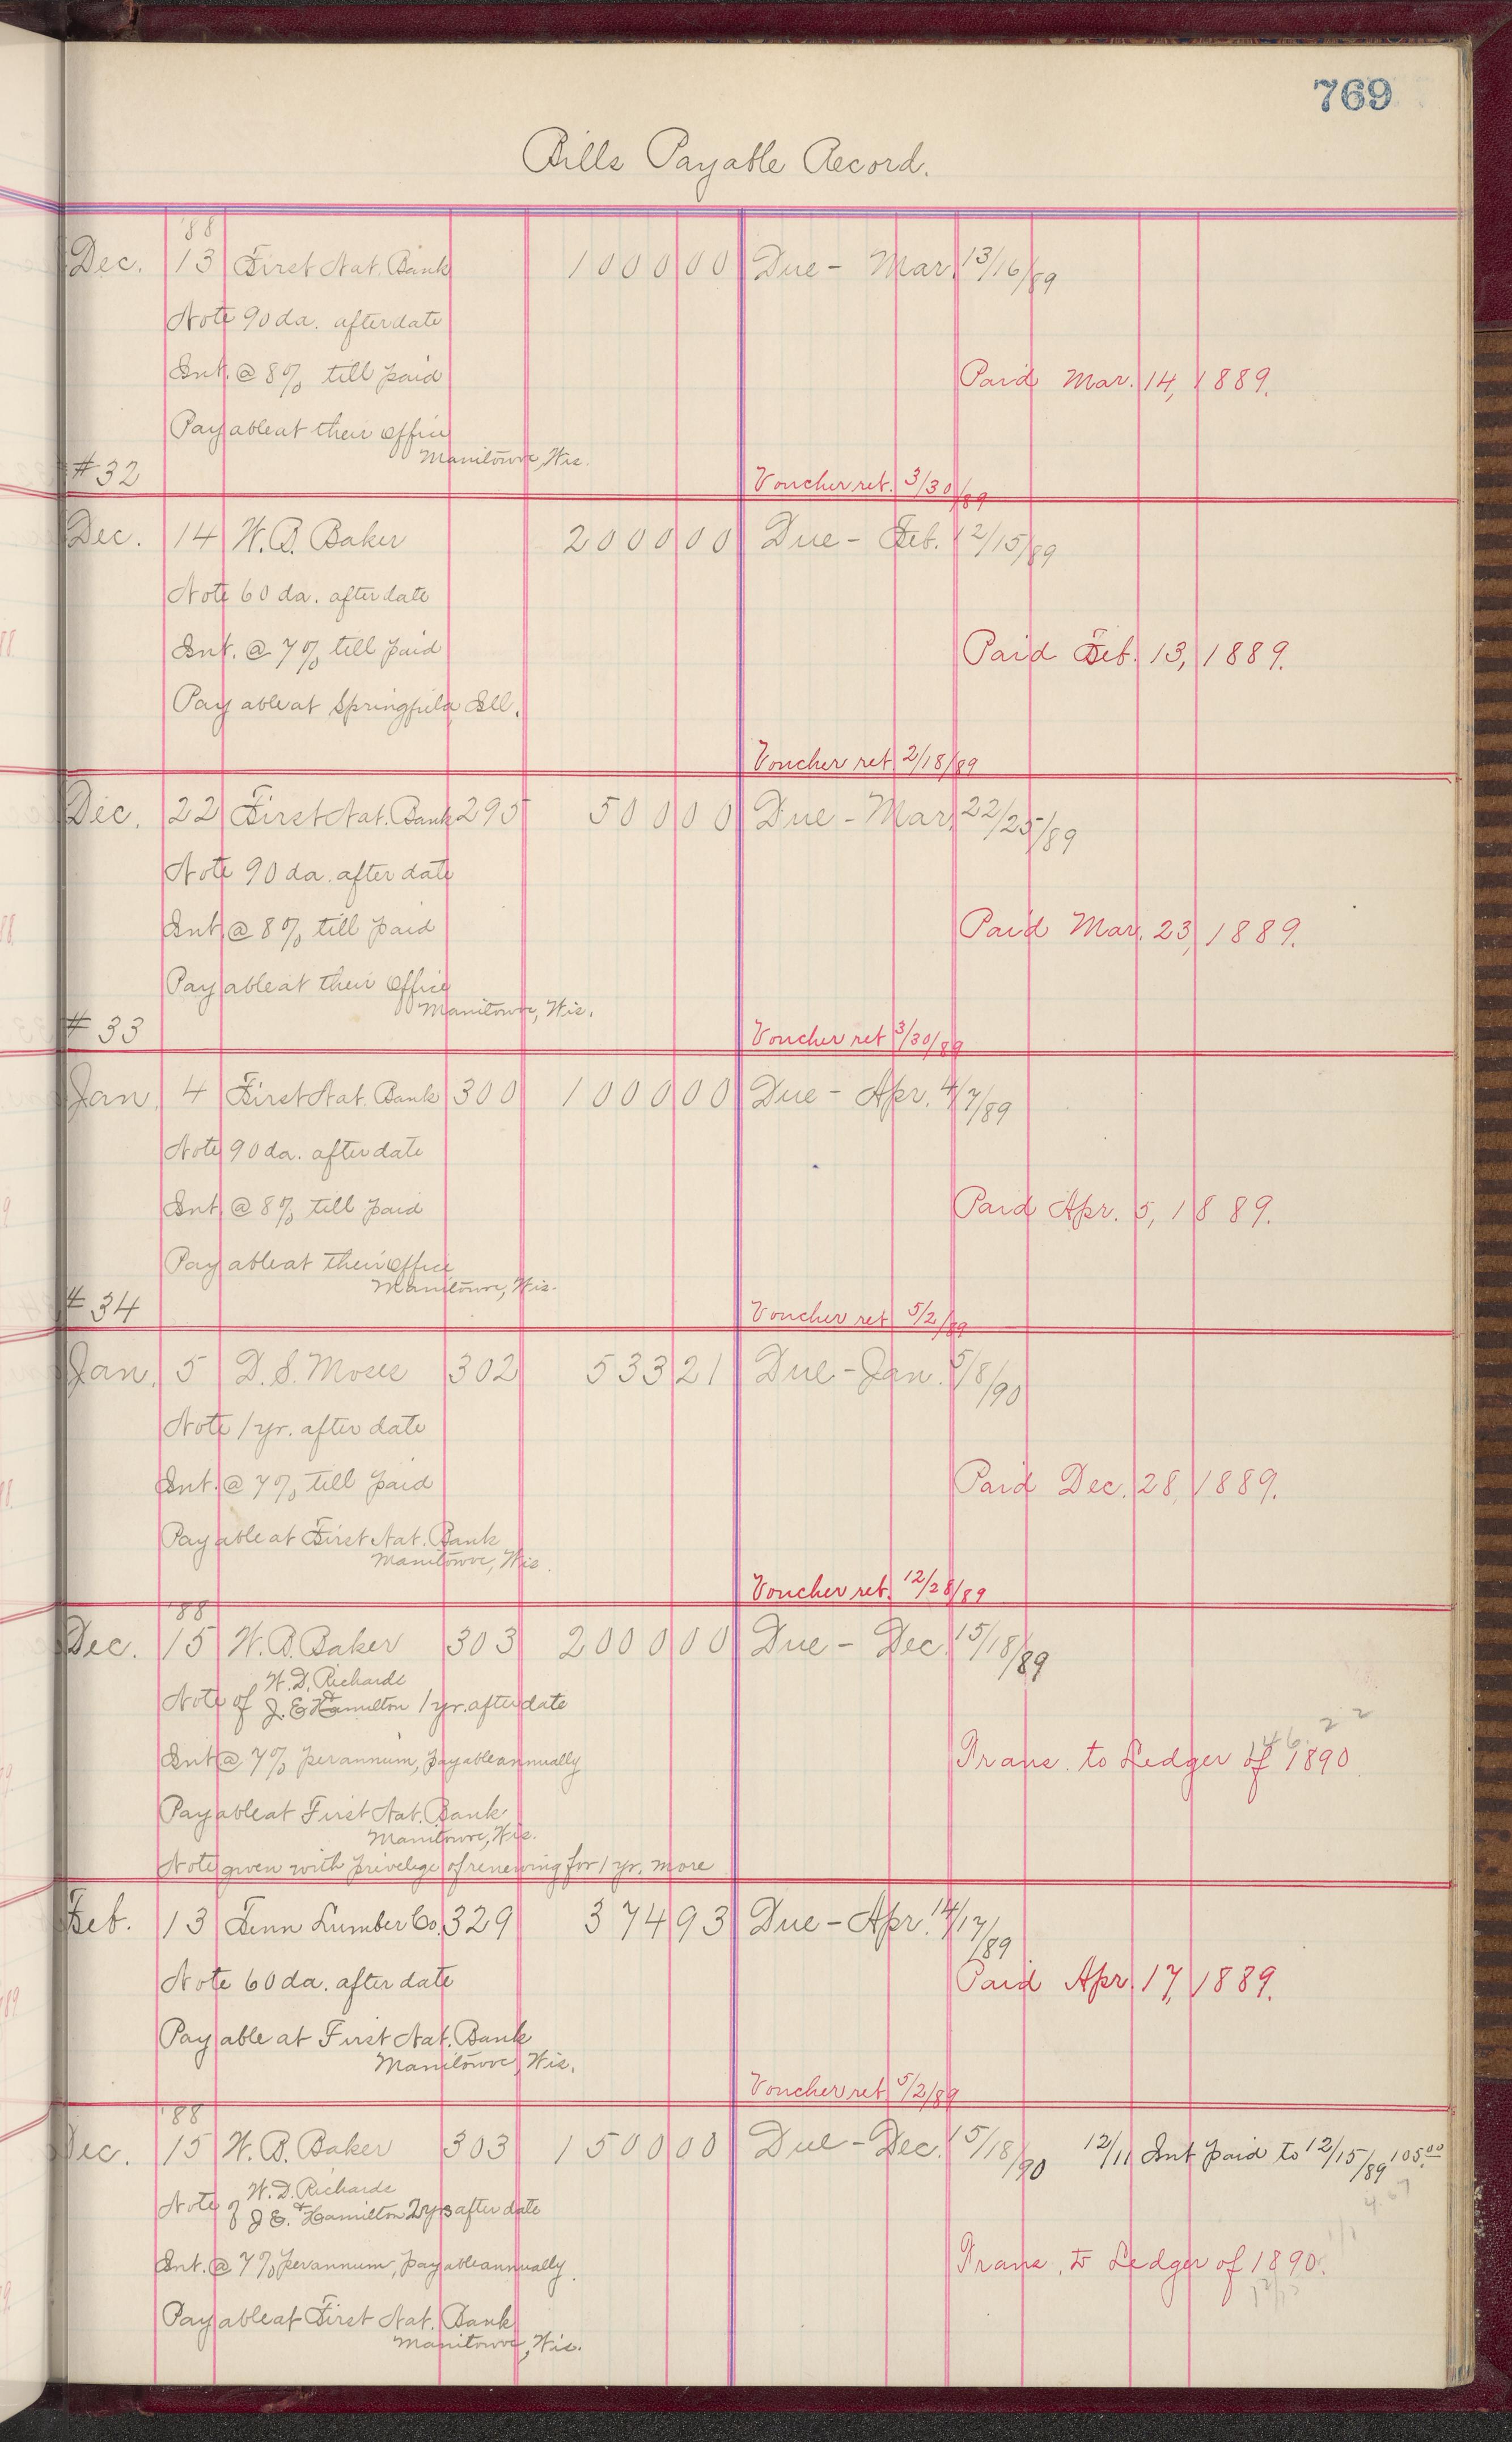 769
Bills Payable Record.
'88
Dec. 13 First Nat. Bank 1000 00 Due - Mar. 13/16/89
Note 90 da. after date
Int. @ 8% till paid Paid Mar. 14, 1889.
Payable at their office
Manitowoc, Wis.
#32 Voucher ret. 3/30/89
Dec. 14 W.B. Baker 2000 00 Due - Feb. 12/15/89
Note 60 da. after date
Int. @ 7% till paid Paid Feb. 13, 1889.
Payable at Springfield Ill.
Voucher ret. 2/18/89
Dec. 22 First Nat. Bank 295 500 00 Due - Mar. 22/25/89
Note 90 da. after date
Int @ 8% till paid Paid Mar. 23, 1889.
Payable at their office
Manitowoc, Wis.
#33 Voucher ret 3/30/89
Jan. 4 First Nat. Bank 300 1000 00 Due - Apr. 4/7/89
Note 90 da. after date
Int @ 8% till paid Paid Apr. 5, 1889.
Payable at their office
Manitowoc, Wis.
#34 Voucher ret 5/2/89
Jan. 5 D.S. Moses 302 533 21 Due - Jan. 5/8/90
Note 1 yr. after date
Int. @ 7% till paid Paid Dec. 28, 1889.
Payable at First Nat. Bank
Manitowoc, Wis.
Voucher ret. 12/28/89
'88
Dec. 15 W.B. Baker 303 2000 00 Due - Dec. 15/18/89
W.D. Richards
Note of J.E. Hamilton 1 yr. after date
Int @ 7% per annum, payable annually Trans. to Ledger of 1890
Payable at First Nat. Bank
Manitowoc, Wis.
Note given with privelige of renewing for 1 yr. more
Feb. 13 Fenn Lumber Co. 329 374 93 Due - Apr. 14/17/89
Note 60 da. after date Paid Apr. 17, 1889.
Payable at First Nat. Bank
Manitowoc, Wis.
Voucher ret 5/2/89
'88
Dec. 15 W.B. Baker 303 1500 00 Due - Dec. 15/18/90 12/11 Int paid to 12/15/89 105.00
W.D. Richards
Note of J.E. & Hamilton 2 yrs after date
Int. @ 7% per annum, payable annually. Trans. to Ledger of 1890.
Payable at First Nat. Bank
Manitowoc, Wis.